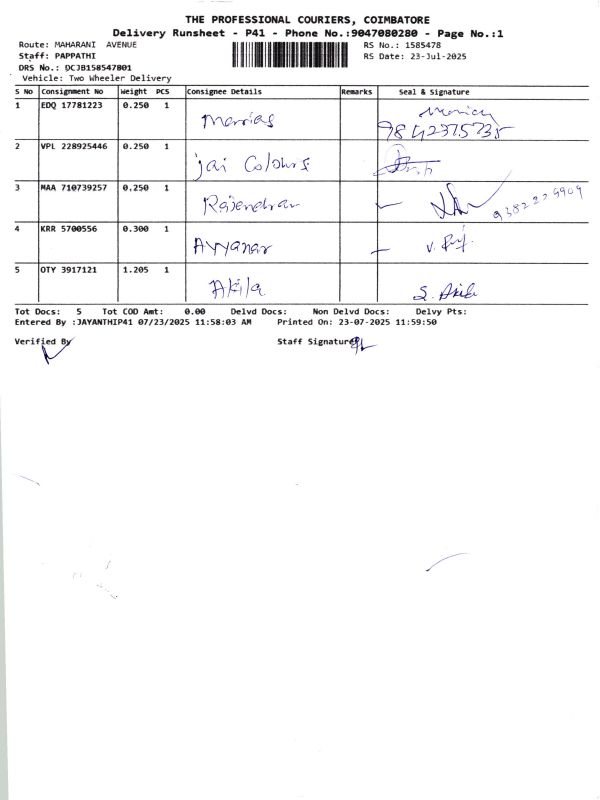 THE PROFESSIONAL COURIERS, COIMBATORE
Delivery Runsheet - P41 - Phone No.:9047080280 - Page No.:1
Route: MAHARANI AVENUE
RS No.: 1585478
Staff: PAPPATHI
RS Date: 23-Jul-2025
DRS No.: DCJB158547801
Vehicle: Two Wheeler Delivery
S No Consignment No Weight PCS Consignee Details Remarks Seal & Signature
1 EDQ 17781223 0.250 1
2 VPL 228925446 0.250 1 Jai Colours
3 MAA 710739257 0.250 1 Rajendran
4 KRR 5700556 0.300 1 Ayyanar
5 OTY 3917121 1.205 1 Akila S. Akila
Tot Docs: 5 Tot COD Amt: 0.00 Delvd Docs: Non Delvd Docs: Delvy Pts:
Entered By :JAYANTHIP41 07/23/2025 11:58:03 AM Printed On: 23-07-2025 11:59:50
Verified By Staff Signature